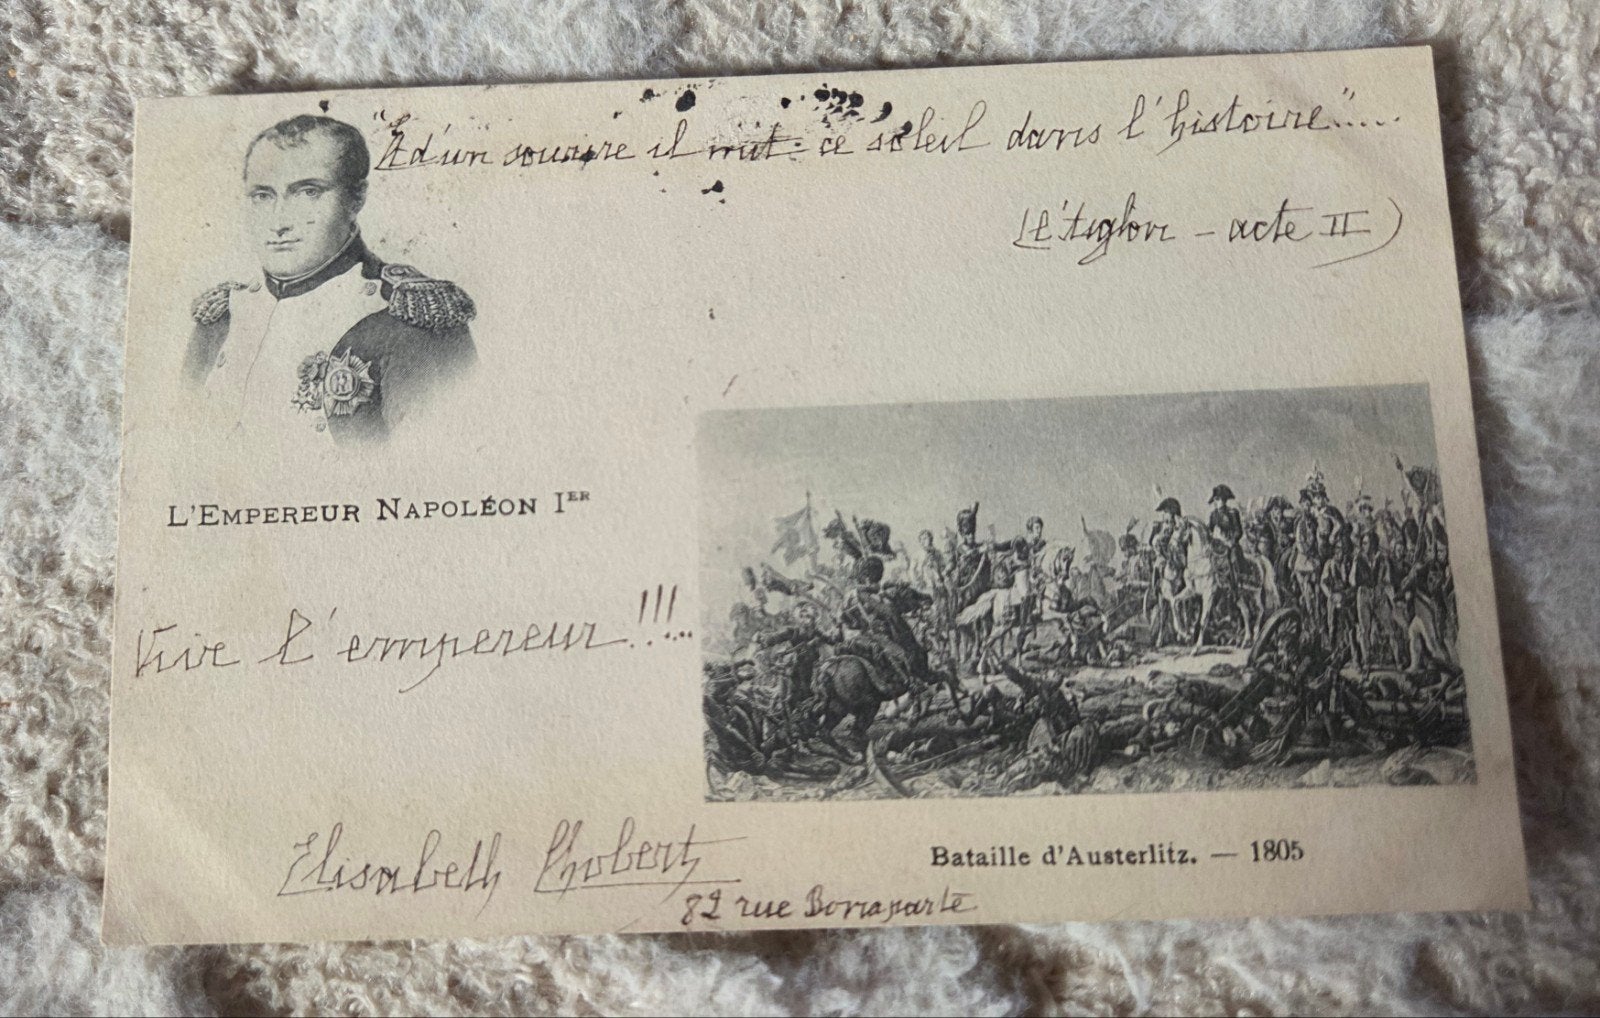 "Et d'un sourire il mit ce soleil dans l'histoire".....
(l'Aiglon - acte II)
L'EMPEREUR NAPOLÉON IER
Vive l'empereur!!!...
Elisabeth Chobert
82 rue Bonaparte
Bataille d'Austerlitz. — 1805